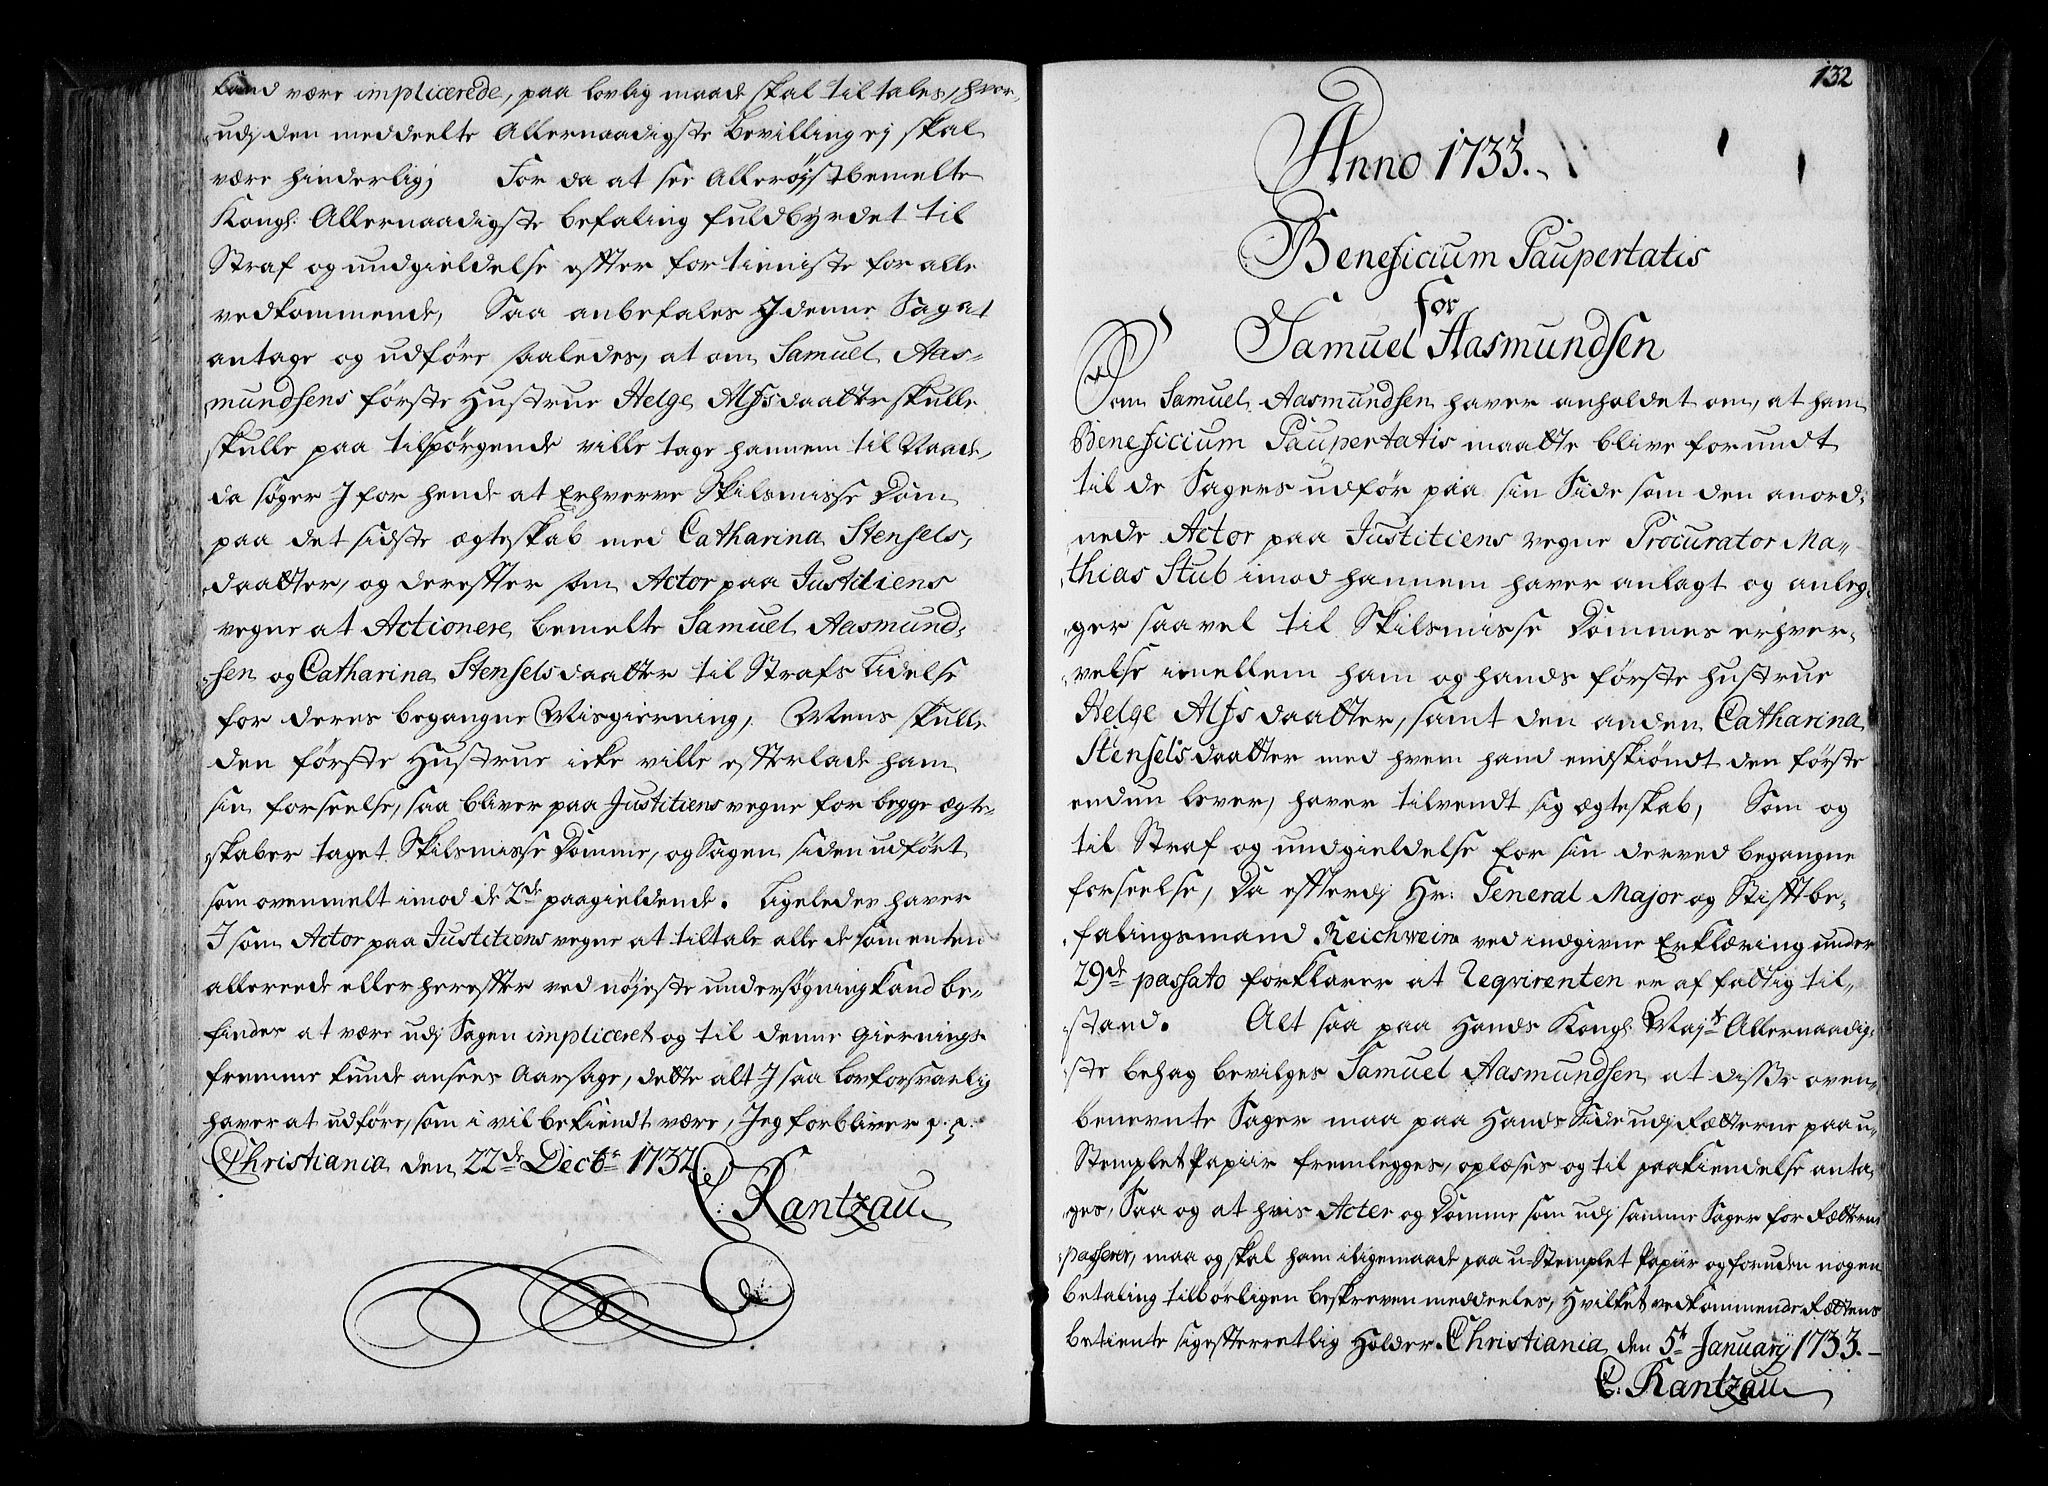 kand være implicerede, paa lovlig maade skal til tales, hvor-
udj den meddeelte Allernaadigste Bevilling ej skal
være hinderlig; For da at see Allerøjstbemelte
Kongl: Allernaadigste befaling fuldbyrdet til
Straf og undgieldelse effter fortieniste for alle
vedkommende, Saa anbefales I denne Sag at
antage og udføre saaledes, at om Samuel Aas-
mundsens første Hustrue Helge Alfsdaatter skulle
skulle paa tilspørgende ville tage hannem til Naade,
da søger I for hende at Erhverve Skilsmisse Dom
paa det sidste ægteskab med Catharina Stensels-
daatter, og dereffter som Actor paa Justitiens
vegne at Actionere bemelte Samuel Aasmund-
sen og Catharina Stenselsdaatter til Strafs Lidelse
for deres begangne Misgierning, Mens skulle
den første Hustrue icke ville effterlade ham
sin forseelse, saa bliver paa Justitiens vegne for begge ægte-
skaber taget Skilsmisse Domme, og Sagen siden udført
som ovenmelt imod de 2de paagieldende. Ligeledes haver
I som Actor paa Justitiens vegne at tiltale alle de som enten
allereede eller hereffter ved nøjeste undersøgning kand be-
findes at være udj Sagen impliceret og til denne Giernings
fremme kunde ansees Aarsage, dette alt I saa lovforsvarlig
haver at udføre, som i vil bekiendt være, Jeg forbliver p. p.
Christiania den 22de Decbr 1732.
C: Rantzau
132
Anno 1733.
Beneficium Paupertatis
for
Samuel Aasmundsen
Som Samuel Aasmundsen haver anholdet om, at ham
Beneficium Paupertatis maatte blive forundt
til de Sagers udfør paa sin Side som den anord-
nede Actor paa Justitiens vegne Procurator Ma-
thias Stub imod hannem haver anlagt og anleg-
ger saavel til Skilsmisse Dommes erhver-
velse imellem ham og hands første Hustrue
Helge Alfsdaatter, samt den anden Catharina
Stenselsdaatter med hvem hand endskiøndt den første
endnu lever, haver tilvendt sig ægteskab, Som og
til Straf og undgieldelse for sin derved begangne
forseelse, Da effterdj Hr: General Major og Stifftbe-
falingsmand Reichwein ved indgivne Erklæring under
29de passato forklarer at Reqvirenten er af fattig til-
stand. Alt saa paa Hands Kongl: Majts Allernaadig-
ste behag bevilges Samuel Aasmundsen at disse oven-
benevnte Sager maa paa Hands Side udj Rætterne paa u-
Stemplet Papiir fremlegges, oplæses og til paakiendelse anta-
ges, Saa og at hvis Acter og Domme som udj samme Sager for Rætterne
passerer, maa og skal ham iligemaade paa u-Stemplet Papiir og foruden nogen
betaling tilbørligen beskreven meddeeles, Hvilket vedkommende Rættens
betiente sig effterretlig Holder. Christiania den 5te January 1733.
C: Rantzau